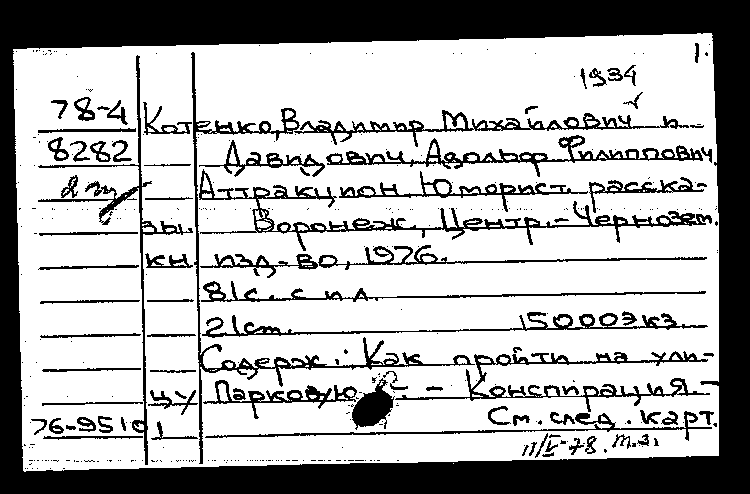 1.
1934
78-4 Котенко, Владимир Михайлович и
8282 Давидович, Адольф Филиппович.
Аттракцион. Юморист. расска-
зы. Воронеж, Центр.-Чернозем.
кн. изд-во, 1976.
81с. с ил.
21см. 15000экз.
Содерж.: Как пройти на ули-
цу Парковую - Конспирация. -
76-95101 См. след. карт.
11/V-78. т.з.